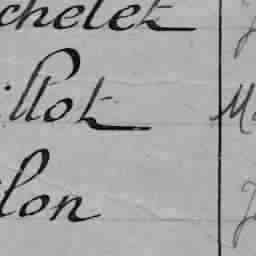 chelet
illot
lon